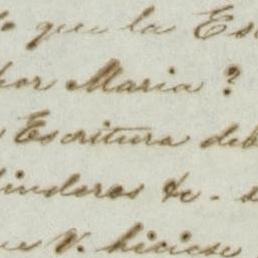 que la Es
por Maria ?
Escritura deb
linderos &c.
V. hiciese